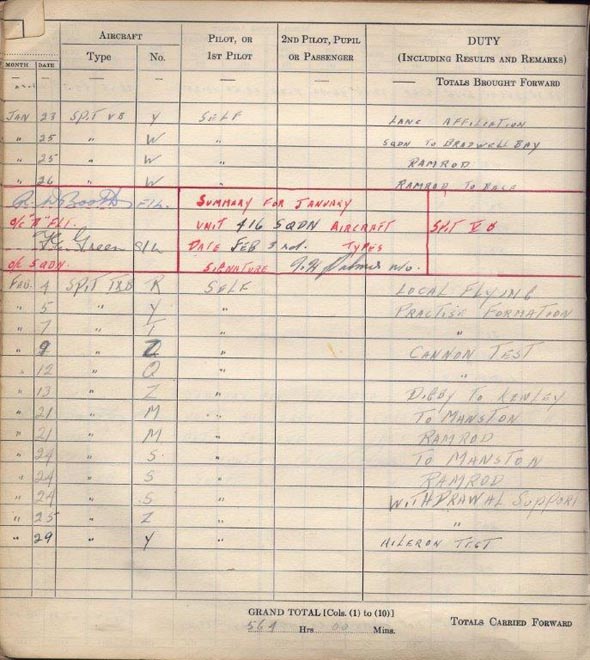 AIRCRAFT PILOT, OR 2ND PILOT, PUPIL DUTY
MONTH DATE Type No. 1ST PILOT OR PASSENGER (INCLUDING RESULTS AND REMARKS)
— — — — — — — TOTALS BROUGHT FORWARD
JAN 23 SPIT VB Y SELF LANC AFFILIATION
" 25 " W " SQDN TO BRADWELL BAY
" 25 " W " RAMROD
" 26 " W " RAMROD TO BASE
Booth F/L. SUMMARY FOR JANUARY
O/C "A" FLT. UNIT 416 SQDN AIRCRAFT SPIT V B
Green S/L DATE FEB 3rd. TYPES
O/C SQDN. SIGNATURE
FEB. 4 SPIT IXB R SELF LOCAL FLYING
" 5 " Y " PRACTISE FORMATION
" 7 " T " "
" 9 " Z " CANNON TEST
" 12 " Q " "
" 13 " Z " DIGBY TO KENLEY
" 21 " M " TO MANSTON
" 21 " M " RAMROD
" 24 " S " TO MANSTON
" 24 " S " RAMROD
" 24 " S " WITHDRAWAL SUPPORT
" 25 " Z " "
" 29 " Y " AILERON TEST
GRAND TOTAL [Cols. (1) to (10)]
564 Hrs 00 Mins. TOTALS CARRIED FORWARD